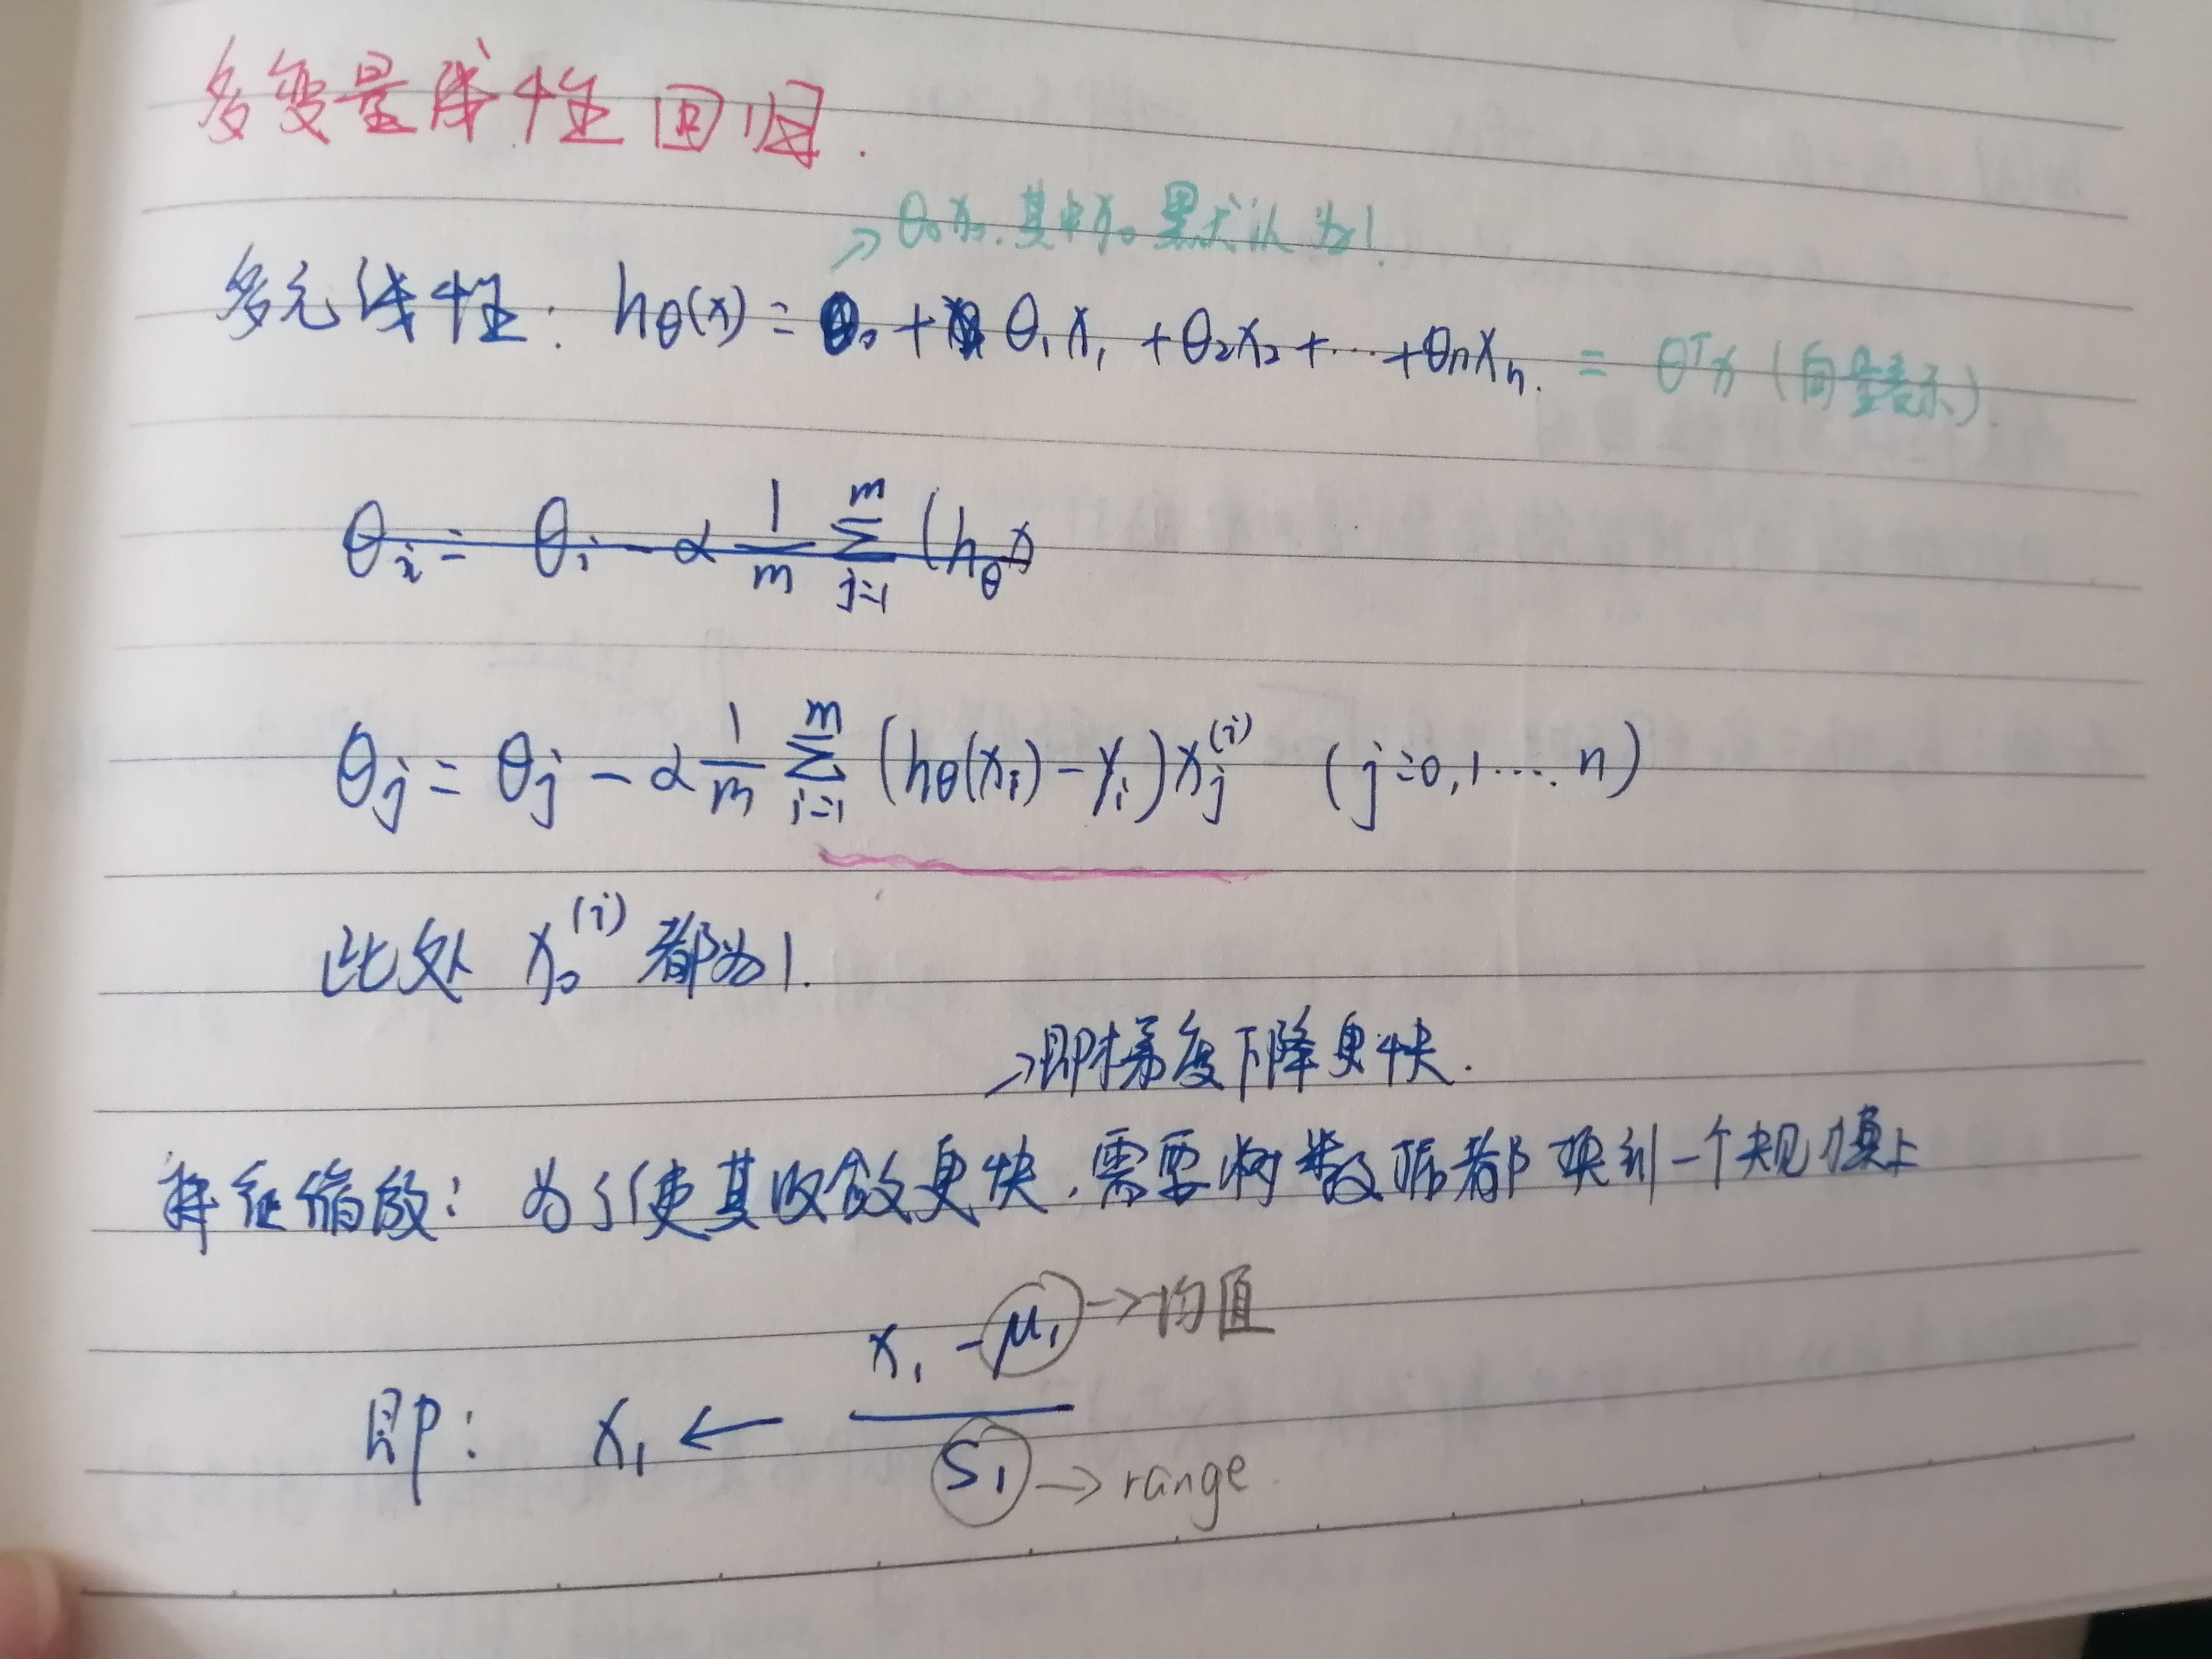 多变量线性回归.
→ θ₀x₀,其中x₀默认为1.
多元线性: hθ(x) = θ₀ + θ₁x₁ + θ₂x₂ + ⋯ + θnxn. = θᵀx (向量表示).
θi = θi - α 1/m Σ(j=1→m) (hθx
θj = θj - α 1/m Σ(i=1→m) (hθ(xi) - yi)xj⁽ⁱ⁾ (j=0,1....n)
此处 x₀⁽ⁱ⁾ 都为1.
→即梯度下降更快.
特征缩放: 为了使其收敛更快,需要将数据都换到一个规模上
即: x₁ ← (x₁ - μ₁) / S₁
→均值
→range